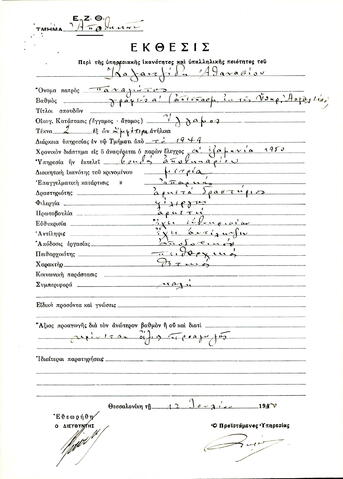 Ε. Ζ. Θ.
ΤΜΗΜΑ Ἀποθηκῶν
ΕΚΘΕΣΙΣ
Περὶ τῆς ὑπηρεσιακῆς ἱκανότητος καὶ ὑπαλληλικῆς ποιότητος τοῦ
Καλαντζίδη Ἀθανασίου
Ὄνομα πατρὸς Παναγιώτης
Βαθμὸς
Τίτλοι σπουδῶν
Οἰκογ. Κατάστασις (ἔγγαμος - ἄγαμος) Ἔγγαμος
Τέκνα 2 ἐξ ὧν ἀμφότερα ἀνήλικα
Διάρκεια ὑπηρεσίας ἐν τῷ Τμήματι ἀπὸ τὸ 1949
Χρονικὸν διάστημα εἰς ὃ ἀναφέρεται ὁ παρὼν ἔλεγχος α' ἑξαμηνία 1950
Ὑπηρεσία ἣν ἐκτελεῖ βοηθ. ἀποθηκαρίου
Διοικητικὴ ἱκανότης τοῦ κρινομένου μετρία
Ἐπαγγελματικὴ κατάρτισις ἐπαρκὴς
Δραστηριότης ἀρκετὰ δραστήριος
Φιλεργία φίλεργος
Πρωτοβουλία ἀρκετὴ
Εὐθυκρισία ἔχει εὐθυκρισίαν
Ἀντίληψις ἔχει ἀντίληψιν
Ἀπόδοσις ἐργασίας ἀποδοτικὸς
Πειθαρχικότης πειθαρχικὸς
Χαρακτὴρ
Κοινωνικὴ παράστασις
Συμπεριφορὰ καλὴ
Εἰδικὰ προσόντα καὶ γνώσεις
Ἄξιος προαγωγῆς διὰ τὸν ἀνώτερον βαθμὸν ἢ οὔ καὶ διατί
κρίνεται ἄξιος προαγωγῆς
Ἰδιαίτεραι παρατηρήσεις
Θεσσαλονίκη τῇ 12 Ἰουλίου 1950
Ἐθεωρήθη
Ο ΔΙΕΥΘΥΝΤΗΣ
Ὁ Προϊστάμενος Ὑπηρεσίας